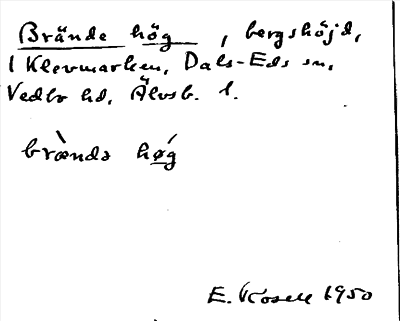 Brände hög, bergshöjd,
i Klevmarken, Dals-Eds sn,
Vedbo hd, Älvsb. l.
bræ̀ndə hǿg
E. Rosell 1950